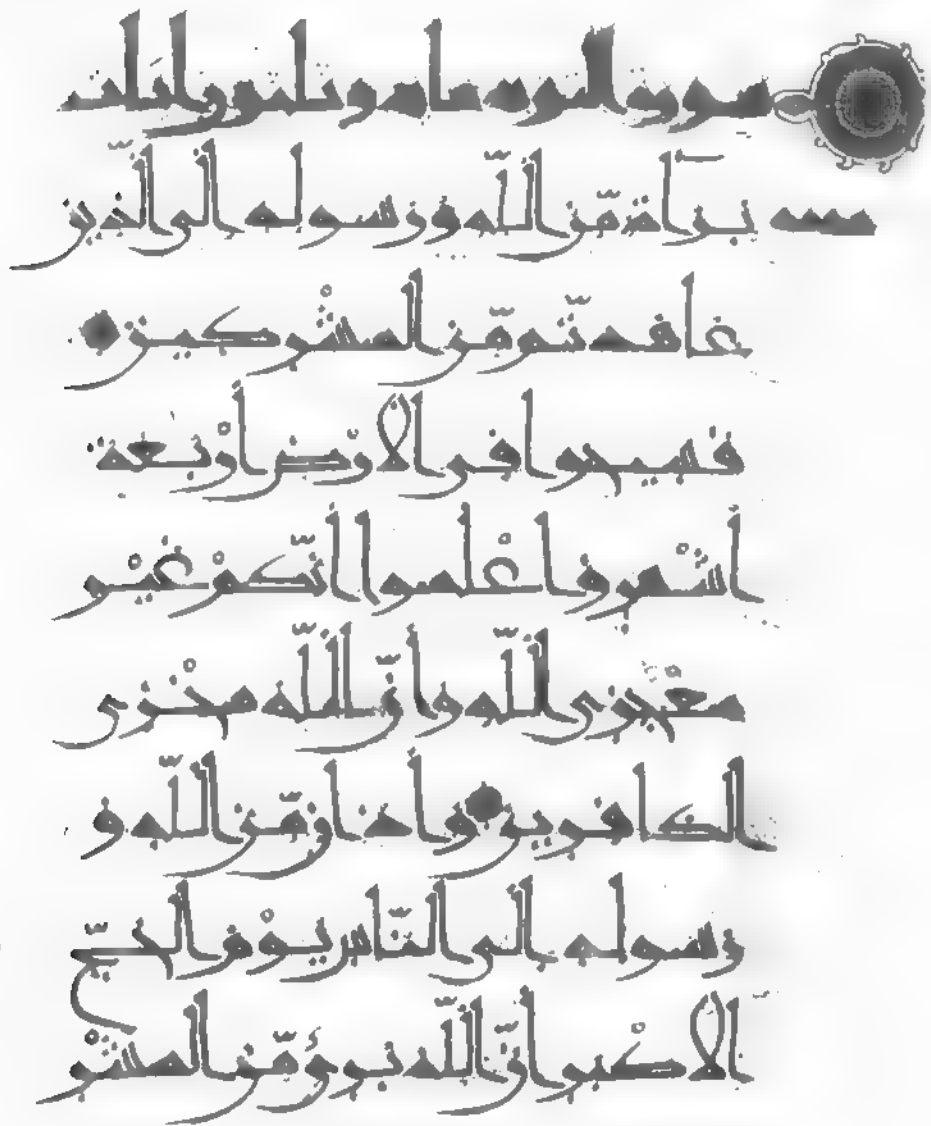 سورة التوبة مائة وثلثون
بَرَآءَةٌ مِّنَ اللَّهِ وَرَسُولِهِ إِلَى الَّذِينَ
عَاهَدتُّم مِّنَ الْمُشْرِكِينَ
فَسِيحُوا فِي الْأَرْضِ أَرْبَعَةَ
أَشْهُرٍ وَاعْلَمُوا أَنَّكُمْ غَيْرُ
مُعْجِزِي اللَّهِ وَأَنَّ اللَّهَ مُخْزِي
الْكَافِرِينَ وَأَذَانٌ مِّنَ اللَّهِ وَ
رَسُولِهِ إِلَى النَّاسِ يَوْمَ الْحَجِّ
الْأَكْبَرِ أَنَّ اللَّهَ بَرِيءٌ مِّنَ الْمُشْرِ